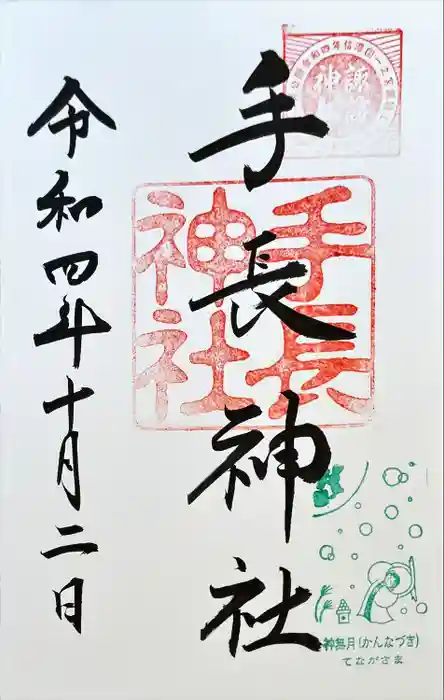 手長神社
令和四年十月二日
手長
神社
神社
神無月(かんなづき)
てながさま